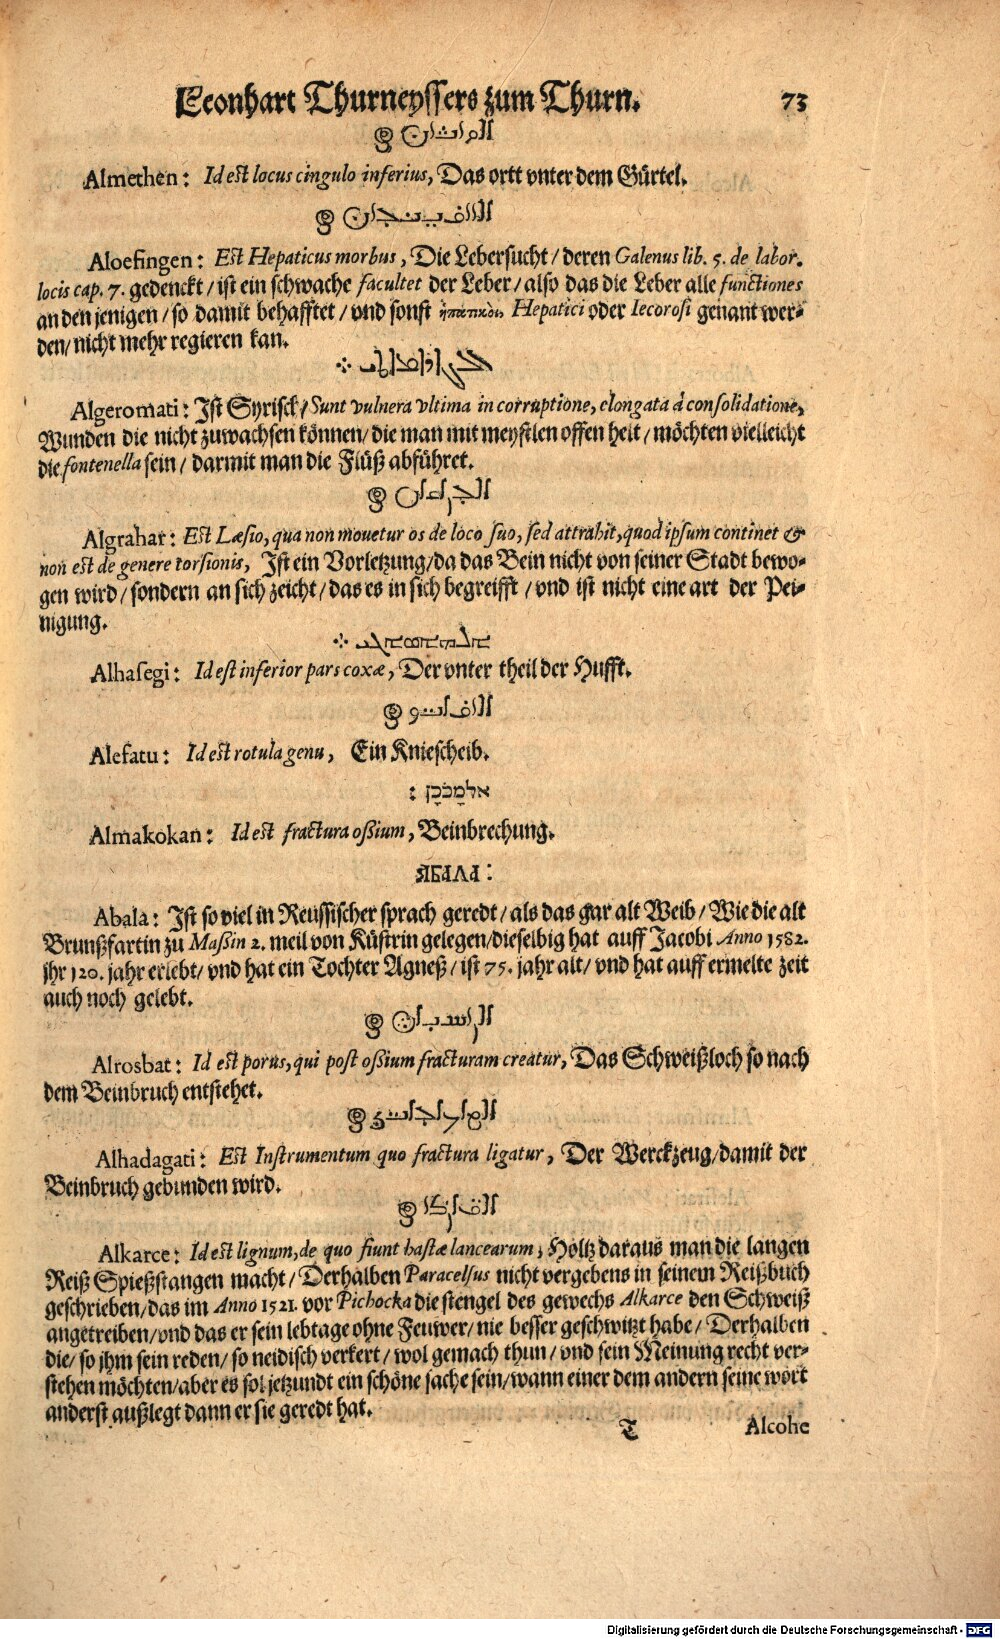 Leonhart Thurneyssers zum Thurn. 73
Almethen: Id est locus cingulo inferius, Das ortt vnter dem Gürtel.
Aloefingen: Est Hepaticus morbus, Die Lebersucht/ deren Galenus lib. 5. de labor.
locis cap. 7. gedenckt/ ist ein schwache facultet der Leber/ also das die Leber alle functiones
an den jenigen/ so damit behafftet/ vnd sonst Hepatici oder Iecorosi genant wer-
den/ nicht mehr regieren kan.
Algeromati: Ist Syrisch/ Sunt vulnera vltima in corruptione, elongata à consolidatione,
Wunden die nicht zuwachsen können/ die man mit meystlen offen helt/ möchten vielleicht
die fontenella sein/ darmit man die Flüß abführet.
Algrahar: Est Læsio, qua non mouetur os de loco suo, sed attrahit, quod ipsum continet &
non est de genere torsionis, Ist ein Vorletzung/ da das Bein nicht von seiner Stadt bewo-
gen wird/ sondern an sich zeicht/ das es in sich begreifft/ vnd ist nicht eine art der Pei-
nigung.
Alhasegi: Id est inferior pars coxæ, Der vnter theil der Hufft.
Alefatu: Id est rotula genu, Ein Kniescheib.
אלמָכֹכָן :
Almakokan: Id est fractura oßium, Beinbrechung.
ЯБАЛА:
Abala: Ist so viel in Reussischer sprach geredt/ als das gar alt Weib/ Wie die alt
Brunßfartin zu Maßin 2. meil von Küstrin gelegen/ dieselbig hat auff Jacobi Anno 1582.
jhr 120. jahr erlebt/ vnd hat ein Tochter Agneß/ ist 75. jahr alt/ vnd hat auff ermelte zeit
auch noch gelebt.
Alrosbat: Id est porus, qui post oßium fracturam creatur, Das Schweißloch so nach
dem Beinbruch entstehet.
Alhadagati: Est Instrumentum quo fractura ligatur, Der Werckzeug/ damit der
Beinbruch gebunden wird.
Alkarce: Id est lignum, de quo fiunt hastæ lancearum, Holtz daraus man die langen
Reiß Spießstangen macht/ Derhalben Paracelsus nicht vergebens in seinem Reißbuch
geschrieben/ das im Anno 1521. vor Pichocka die stengel des gewechs Alkarce den Schweiß
angetreiben/ vnd das er sein lebtage ohne Feuwer/ nie besser geschwitzt habe/ Derhalben
die/ so jhm sein reden/ so neidisch verkert/ wol gemach thun/ vnd sein Meinung recht ver-
stehen möchten/ aber es sol jetzundt ein schöne sache sein/ wann einer dem andern seine wort
anderst außlegt dann er sie geredt hat.
T Alcohe
Digitalisierung gefördert durch die Deutsche Forschungsgemeinschaft - DFG